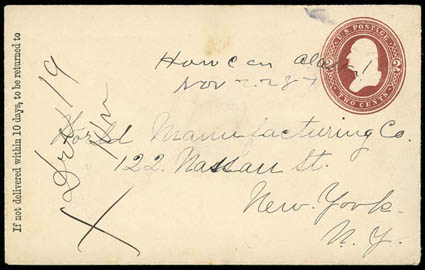 If not delivered within 10 days, to be returned to
U.S. POSTAGE
TWO CENTS
2 2
Howcan Alaska
Nov 22 87
Manufacturing Co.
122 Nassau St.
New York
N.Y.
19